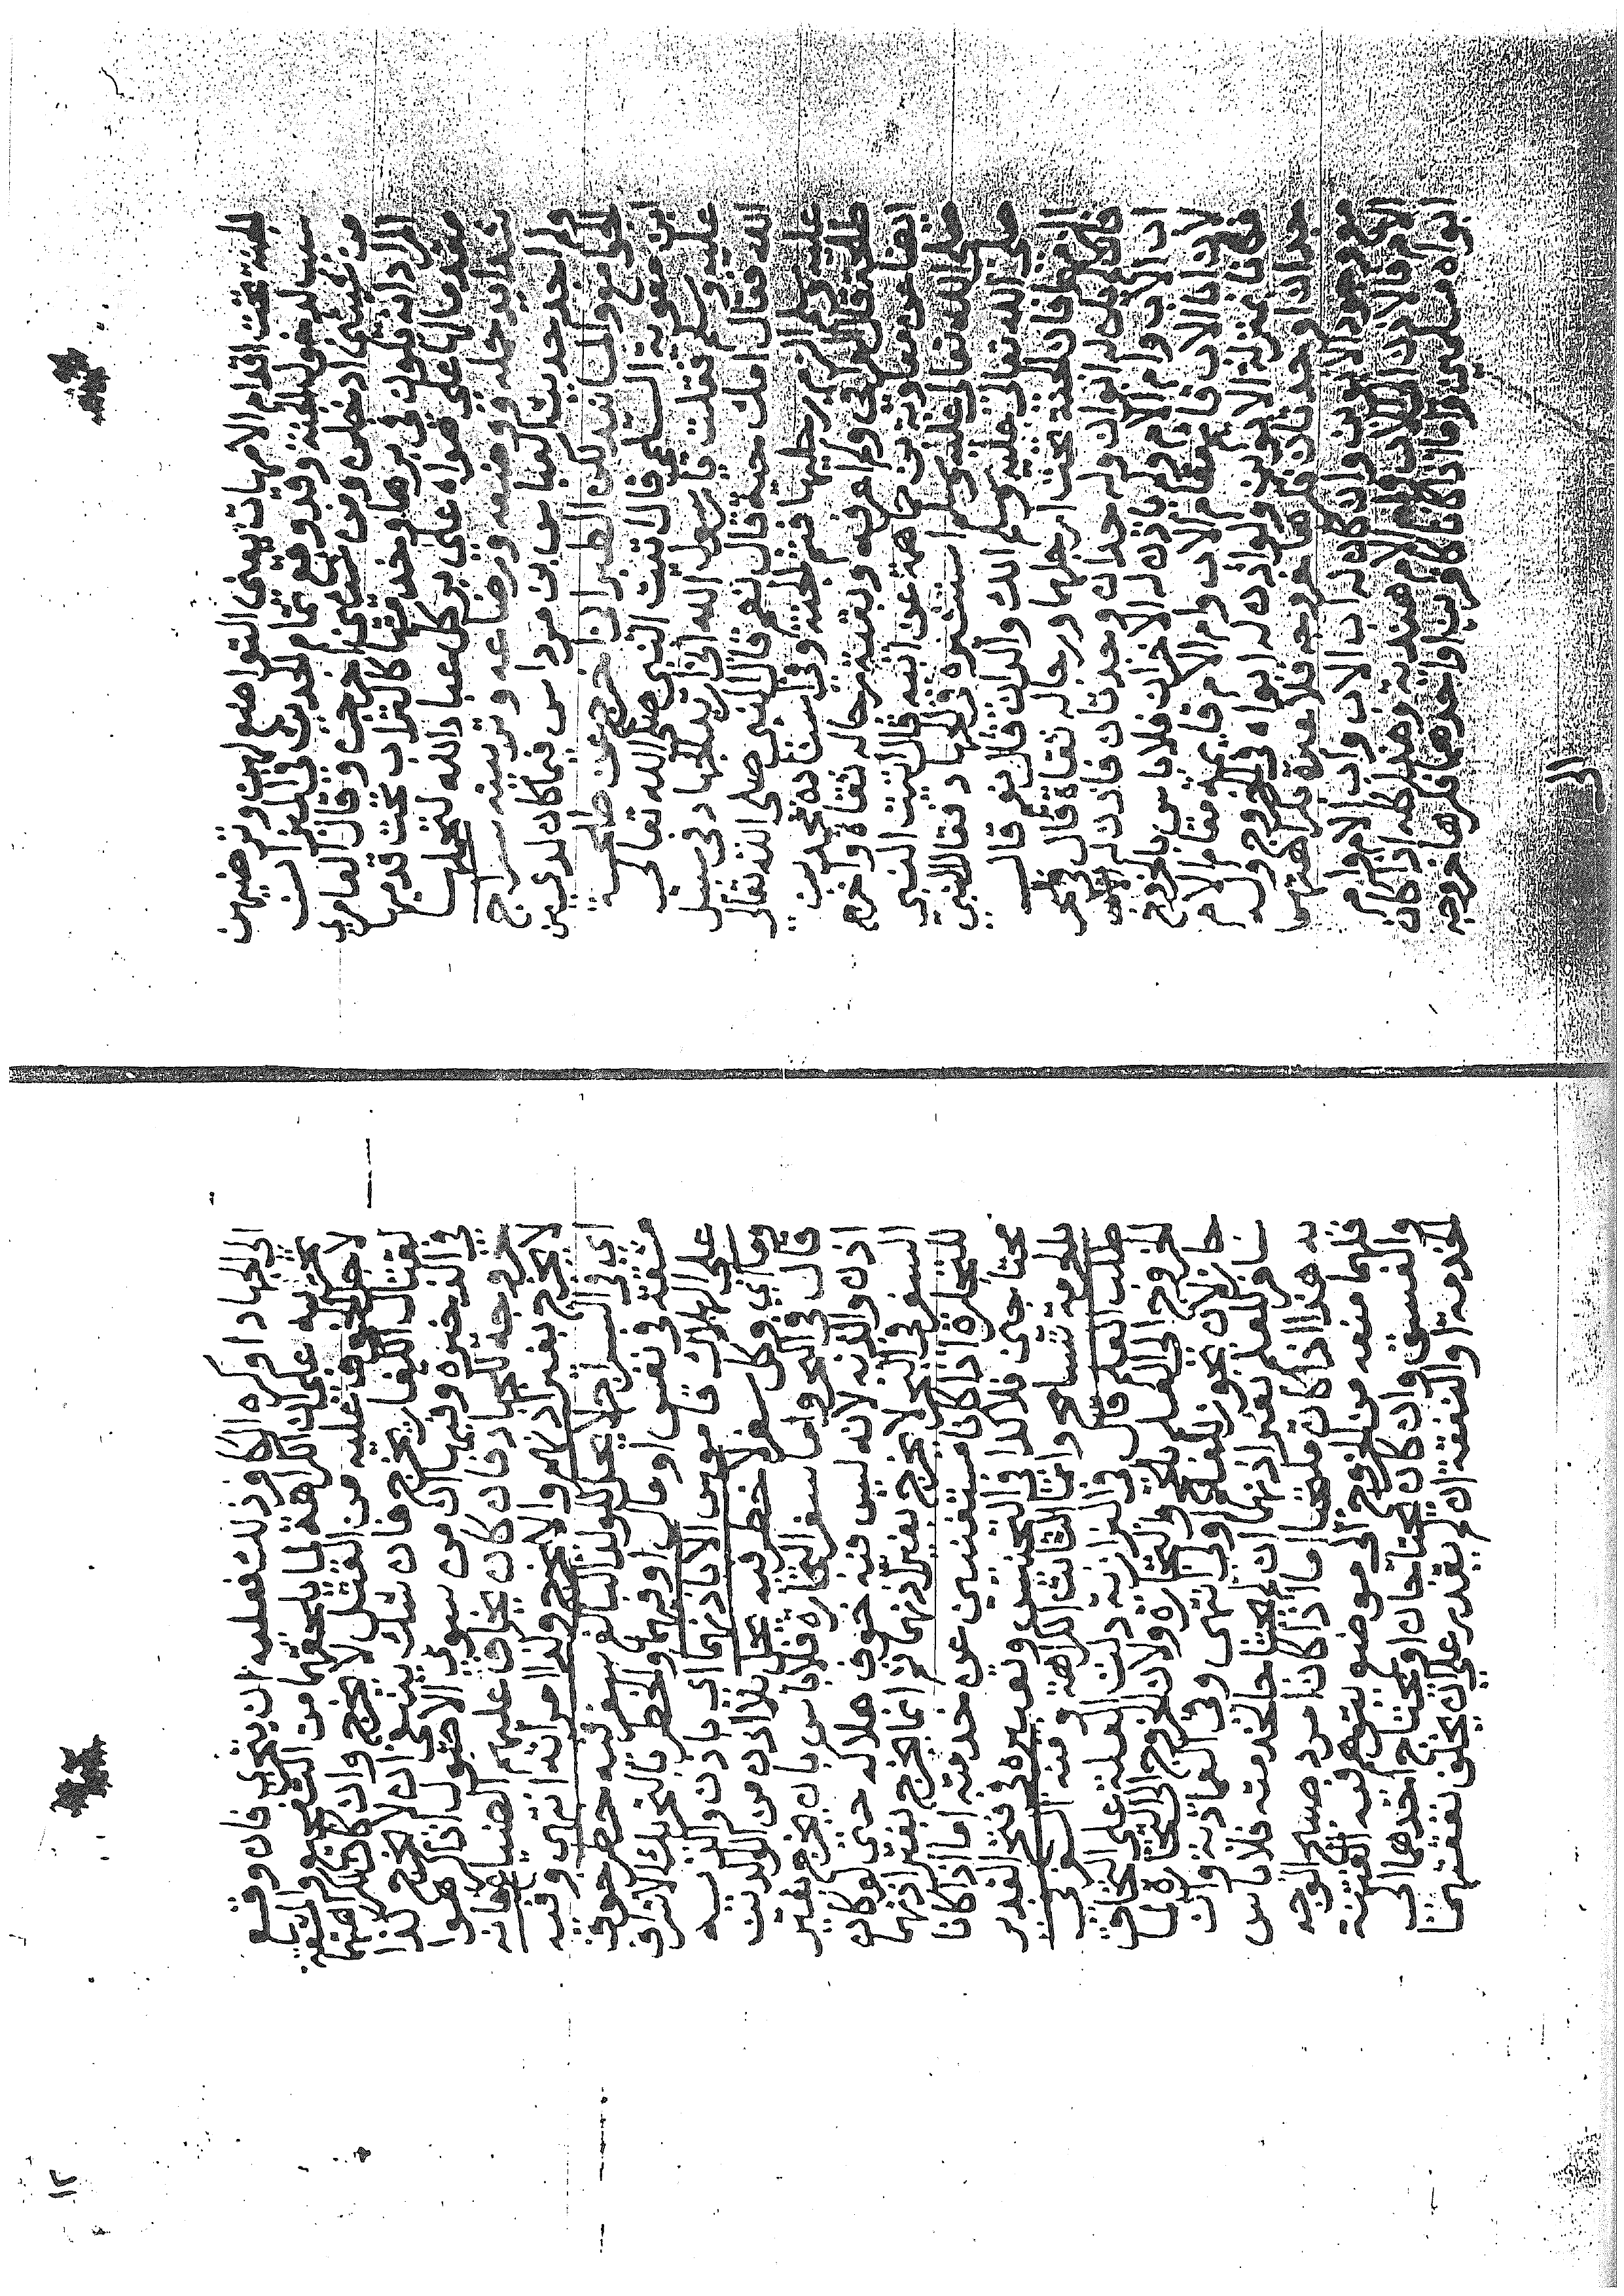 الجنة تحت اقدام الامهات يعنى التواضع لهن وترضيهن
سبب لدخول الجنة وقد وقع تمام الحديث في الميزان
من ادخلن ومن اخرجن وقال العامري
المراد انه تكون في برها وخدمتها كالتراب تحت قدميها
مقدما لها على هواه على بر كل عباد الله لتحملها
شدائد حمله ووضعه ورضاعه وتربيته سراج
ولم اجد حديث العباس بن مرداس فيما كان لدي من
الجوامع والمسانيد لكن الطبراني اخرج عن طلحة
ابن معوية السلمي قال اتيت النبي صلى الله تعالى
عليه وسلم فقلت يا رسول الله اني اريد الجهاد في سبيل
الله فقال امك حية قال نعم قال النبي صلى الله تعالى
عليه وسلم الزم رجليها فثم الجنة وفي اسناده محمد بن
طلحة قال العراقي ولم اعرفه وبقية رجاله ثقاة واخرج
ايضا عن معاوية بن جاهمة عن ابيه قال اتيت النبي
صلى الله تعالى عليه وسلم استشيره في الجهاد فقال النبي
صلى الله تعالى عليه وسلم الك والدان قال نعم قال
الزمهما فان الجنة تحت ارجلهما ورجاله ثقاة قال
فان كان له ابوان وله جدان وجدتان فاذن له
اب الاب وام الام ولم ياذن له الاخران فلا باس بالخروج
لان اب الاب قائم مقام الاب وام الام قائمة مقام الام
فكانا بمنزلة الابوين ولو اذن له ابواه في الخروج وله
جدان او جدتان فكرها خروجه فلا عبرة بكراهتهم
مع وجود الابوين وان كان له ام الاب واب الام وام
الام فالاذن الى اب الاب وام الام هندية وهذا كله اذا كان
ابواه مسلمين واما اذا كانا كافرين او احدهما فكرها خروجه
الى
الى الجهاد او كره الكافر ذلك فعليه ان يتحرى فان وقع
تحريه على ان الكراهة لما يلحقهما من التفجع والمشقة
لاجل الخوف عليه من القتل لا يخرج وان كان كراهتهما
لقتال الكفار يخرج فان شك ينبغي ان لا يخرج كذا
في الذخيرة وفيها ان من سوى الاصول اذا كرهوا
خروجه للجهاد فان كان يخاف عليهم الضياع فانه
لا يخرج بغير اذنهم والا يخرج وكذا امراته انتهى وفيه
اى في السراج لا يحل للولد البالغ سفر فيه خطر خوف
ومشقة في نفس او مال او فيهما والخطر بالتحريك الاشراف
على الهلاك قاموس الا باذنهما اي باذن والديه
معا اي وكل سفر لا خطر فيه يحل بلا اذن من الوالدين
قال في البحر واما سفر التجارة فلا باس بان يخرج بغير
اذن والديه لانه ليس فيه خوف هلاكه حتى لو كان
السفر في البحر لا يخرج بغير اذنهما ثم انما يخرج بغير اذنهما
للتجارة اذا كانا مستغنيين عن خدمته اما اذا كانا
محتاجين فلا كذا في التجنيس في فتح القدير
تسامح الثابت الكراهة ومنه السفر في
طلب العلم قال في البزازية دلت المسئلة على
الخروج الى العلم والحج والتجارة لان الخروج الى التجارة لما
جاز لان يجوز للعلم اولى انتهى وفي العمادية وان
سافر للعلم بغير اذنهما ان احتاجا لخدمته فلا باس
به هذا اذا كان ملتحيا اما اذا كان امرد صبيح الوجه
فلهما منعه من الخروج الى موضع يتوهم فيه الفتنة
والفسق وان كانا محتاجان او يحتاج احدهما الى
الخدمة او النفقة ان لم يقدر على ان يخلف نفقتهما
١٢